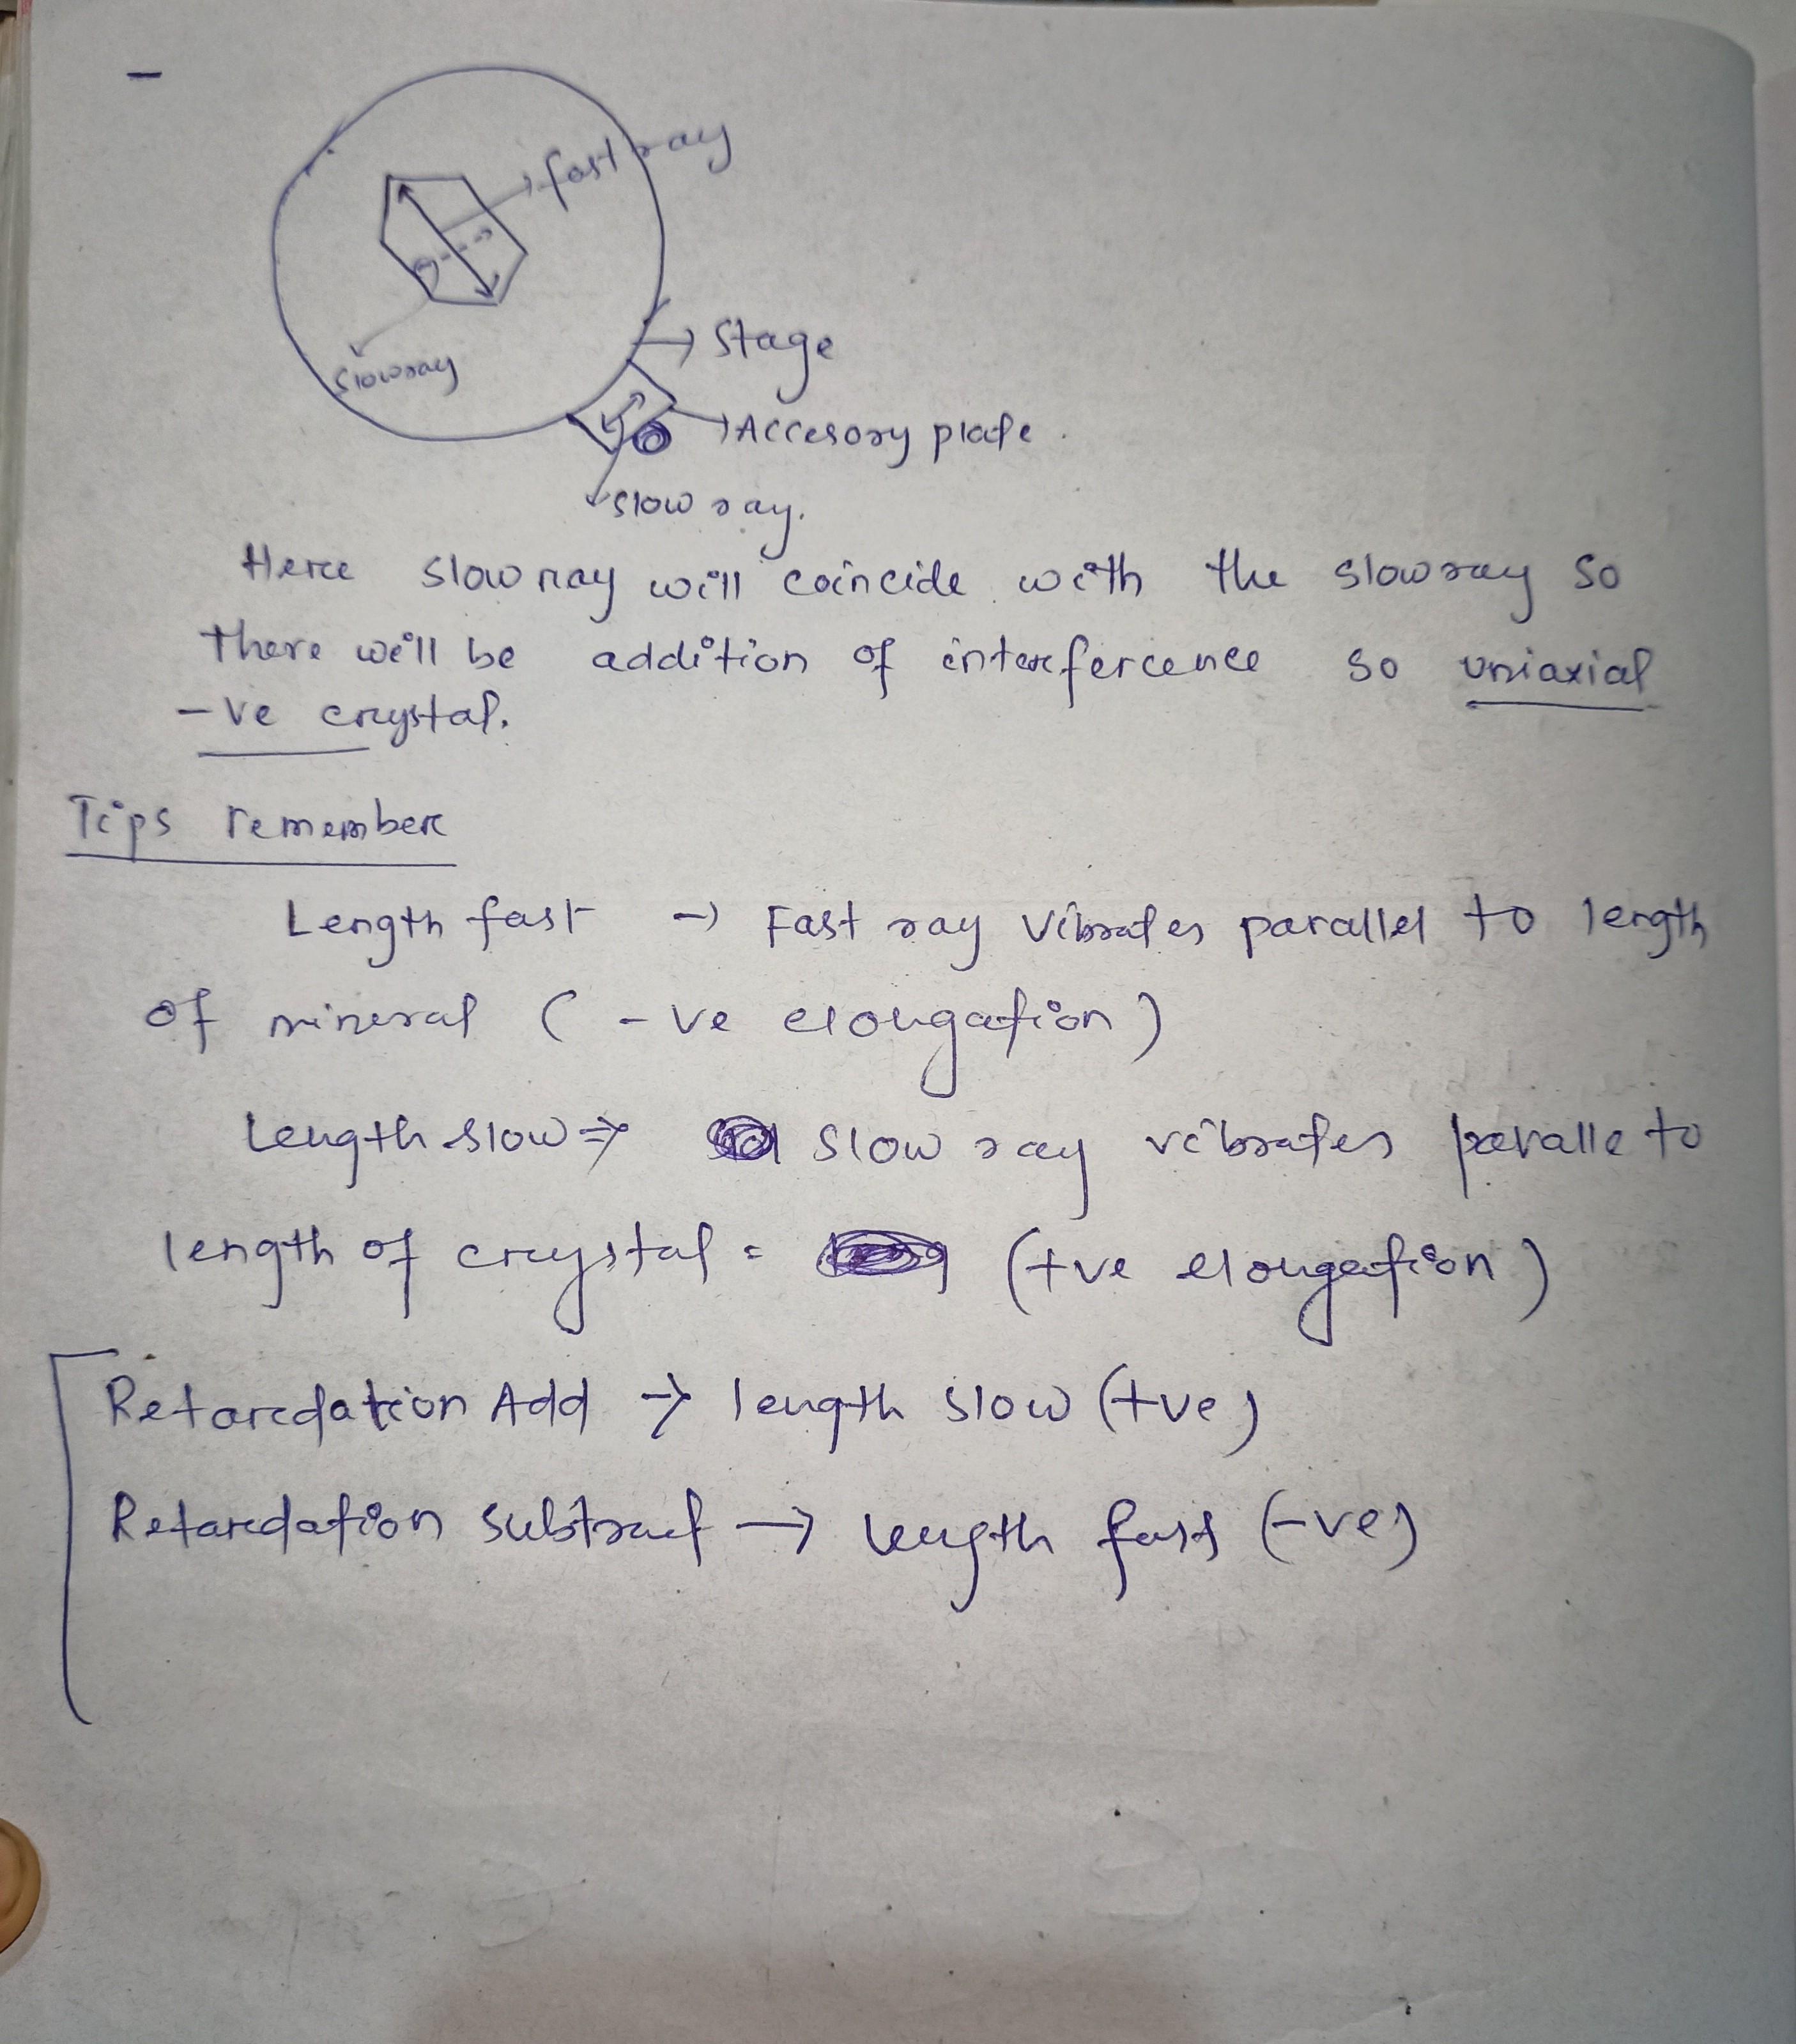 fast ray
slow ray
Stage
Accesory plate
slow ray.
Here slow ray will coincide with the slow ray so
there will be addition of interference so uniaxial
-ve crystal.
Tips remember
Length fast → Fast ray vibrates parallel to length
of mineral (-ve elongation)
Length slow ⇒ slow ray vibrates paralle to
length of crystal = (+ve elongation)
Retardation Add → length slow (+ve)
Retardation subtract → length fast (-ve)